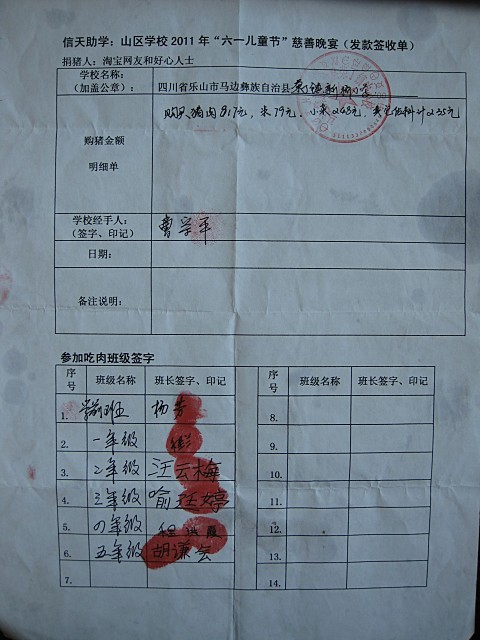 信天助学：山区学校 2011 年“六一儿童节”慈善晚宴（发款签收单）
捐猪人：淘宝网友和好心人士
学校名称：
（加盖公章）：
四川省乐山市马边彝族自治县
购买猪肉817元，米79元，小菜268元，其它佐料计235元
购猪金额
明细单
学校经手人：
（签字、印记）
曹学平
日期：
备注说明：
参加吃肉班级签字
序号 班级名称 班长签字、印记 序号 班级名称 班长签字、印记
1. 学前班 杨 8.
2. 一年级 9.
3. 二年级 汪云梅 10.
4. 三年级 喻廷婷 11.
5. 四年级 程 霞 12.
6. 五年级 胡谦云 13.
7. 14.